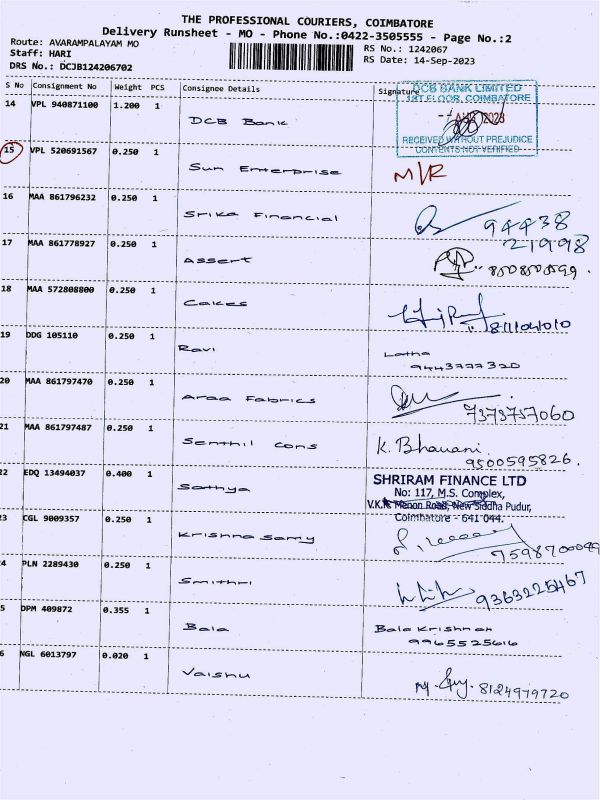 THE PROFESSIONAL COURIERS, COIMBATORE
Delivery Runsheet - MO - Phone No.:0422-3505555 - Page No.:2
Route: AVARAMPALAYAM MO
RS No.: 1242067
Staff: HARI
RS Date: 14-Sep-2023
DRS No.: DCJB124206702
S No Consignment No Weight PCS Consignee Details Signature
DCB BANK LIMITED
1ST FLOOR, COIMBATORE
2023
RECEIVED WITHOUT PREJUDICE
CONTENTS NOT VERIFIED
14 VPL 940871100 1.200 1 DCB Bank
15 VPL 520691567 0.250 1 Sun Enterprise M/R
16 MAA 861796232 0.250 1 Srika Financial 94438
21998
17 MAA 861778927 0.250 1 Assert
18 MAA 572808800 0.250 1 Cakes
19 DDG 105110 0.250 1 Ravi Latha
9443777320
20 MAA 861797470 0.250 1 Araa Fabrics 7373757060
21 MAA 861797487 0.250 1 Senthil Cons K. Bhavani.
9500595826.
22 EDQ 13494037 0.400 1 Sathya
SHRIRAM FINANCE LTD
No: 117, M.S. Complex,
V.K.K. Menon Road, New Siddha Pudur,
Coimbatore - 641 044.
23 CGL 9009357 0.250 1 Krishna Samy
4 PLN 2289430 0.250 1 Smithri 9363225467
5 DPM 409872 0.355 1 Bala Bala Krishnan
9965525616
6 NGL 6013797 0.020 1 Vaishu 8124979720